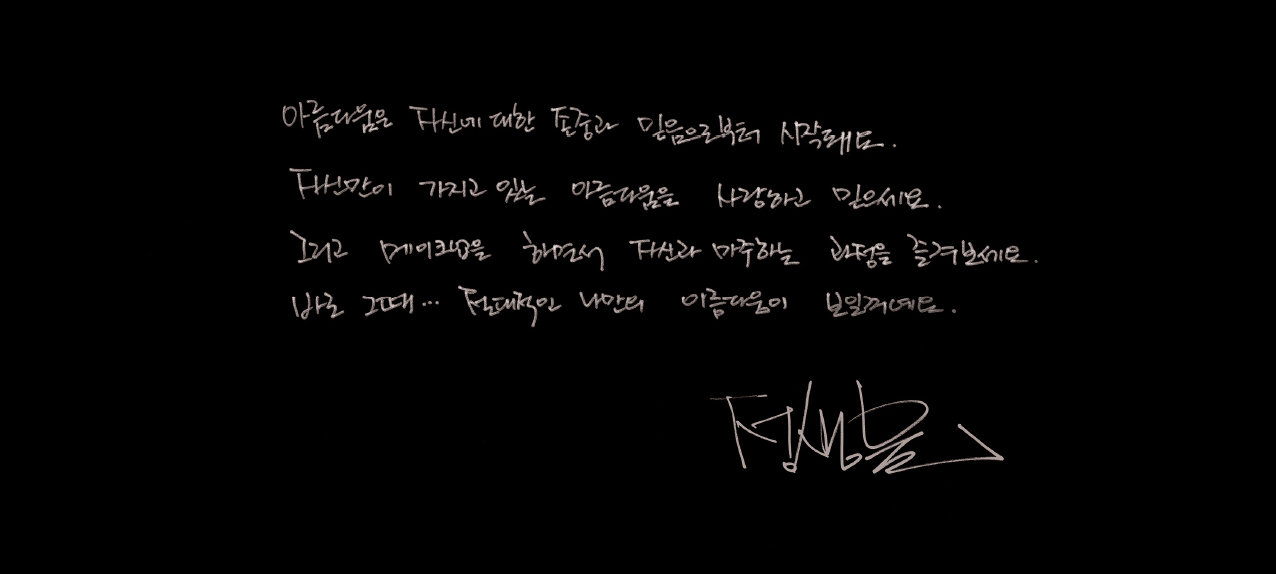 아름다움은 자신에 대한 존중과 믿음으로부터 시작돼요.
자신만이 가지고 있는 아름다움을 사랑하고 믿으세요.
그리고 메이크업을 하면서 자신과 마주하는 과정을 즐겨보세요.
바로 그때... 절대적인 나만의 아름다움이 보일꺼예요.
정샘물